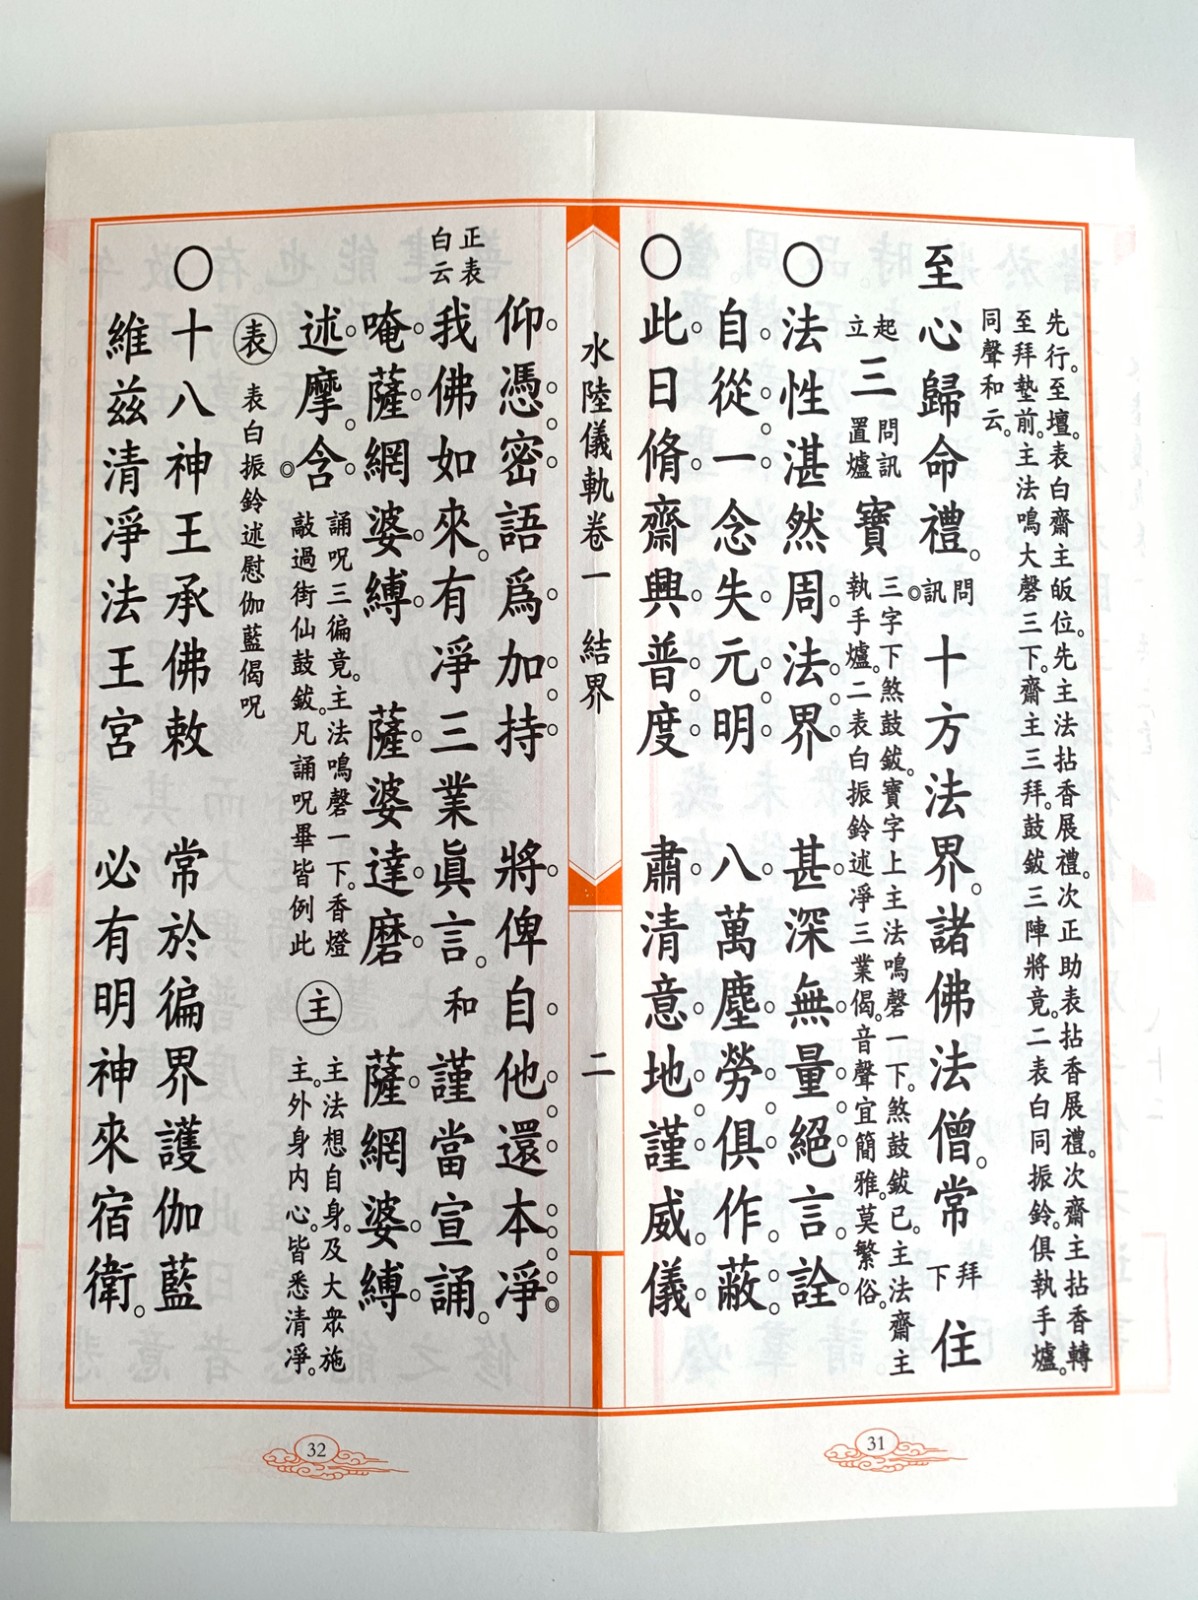 先行。至壇。表白齋主皈位。先主法拈香展禮。次正助表拈香展禮。次齋主拈香轉
至拜墊前。主法鳴大磬三下。齋主三拜。鼓鈸三陣將竟。二表白同振鈴。俱執手爐。
同聲和云。
至心歸命禮。問訊◎十方法界。諸佛法僧。常拜下住
起立三問訊置爐寶三字下煞鼓鈸。寶字上主法鳴磬一下。煞鼓鈸已。主法齋主
執手爐。二表白振鈴述淨三業偈。音聲宜簡雅。莫繁俗。
○法性湛然周法界 甚深無量絕言詮
自從一念失元明 八萬塵勞俱作蔽
○此日脩齋興普度 肅清意地謹威儀
水陸儀軌卷一 結界 二
仰憑密語爲加持 將俾自他還本淨◎
正表白云我佛如來。有淨三業眞言。和謹當宣誦。
唵薩網婆縛 薩婆達磨 薩網婆縛
述摩含◎誦呪三徧竟。主法鳴磬一下。香燈
敲過街仙鼓鈸。凡誦呪畢皆例此
主 主法想自身。及大衆施
主。外身内心。皆悉清淨。
表 表白振鈴述慰伽藍偈呪
○十八神王承佛敕 常於徧界護伽藍
維兹清淨法王宮 必有明神來宿衛。
32
31